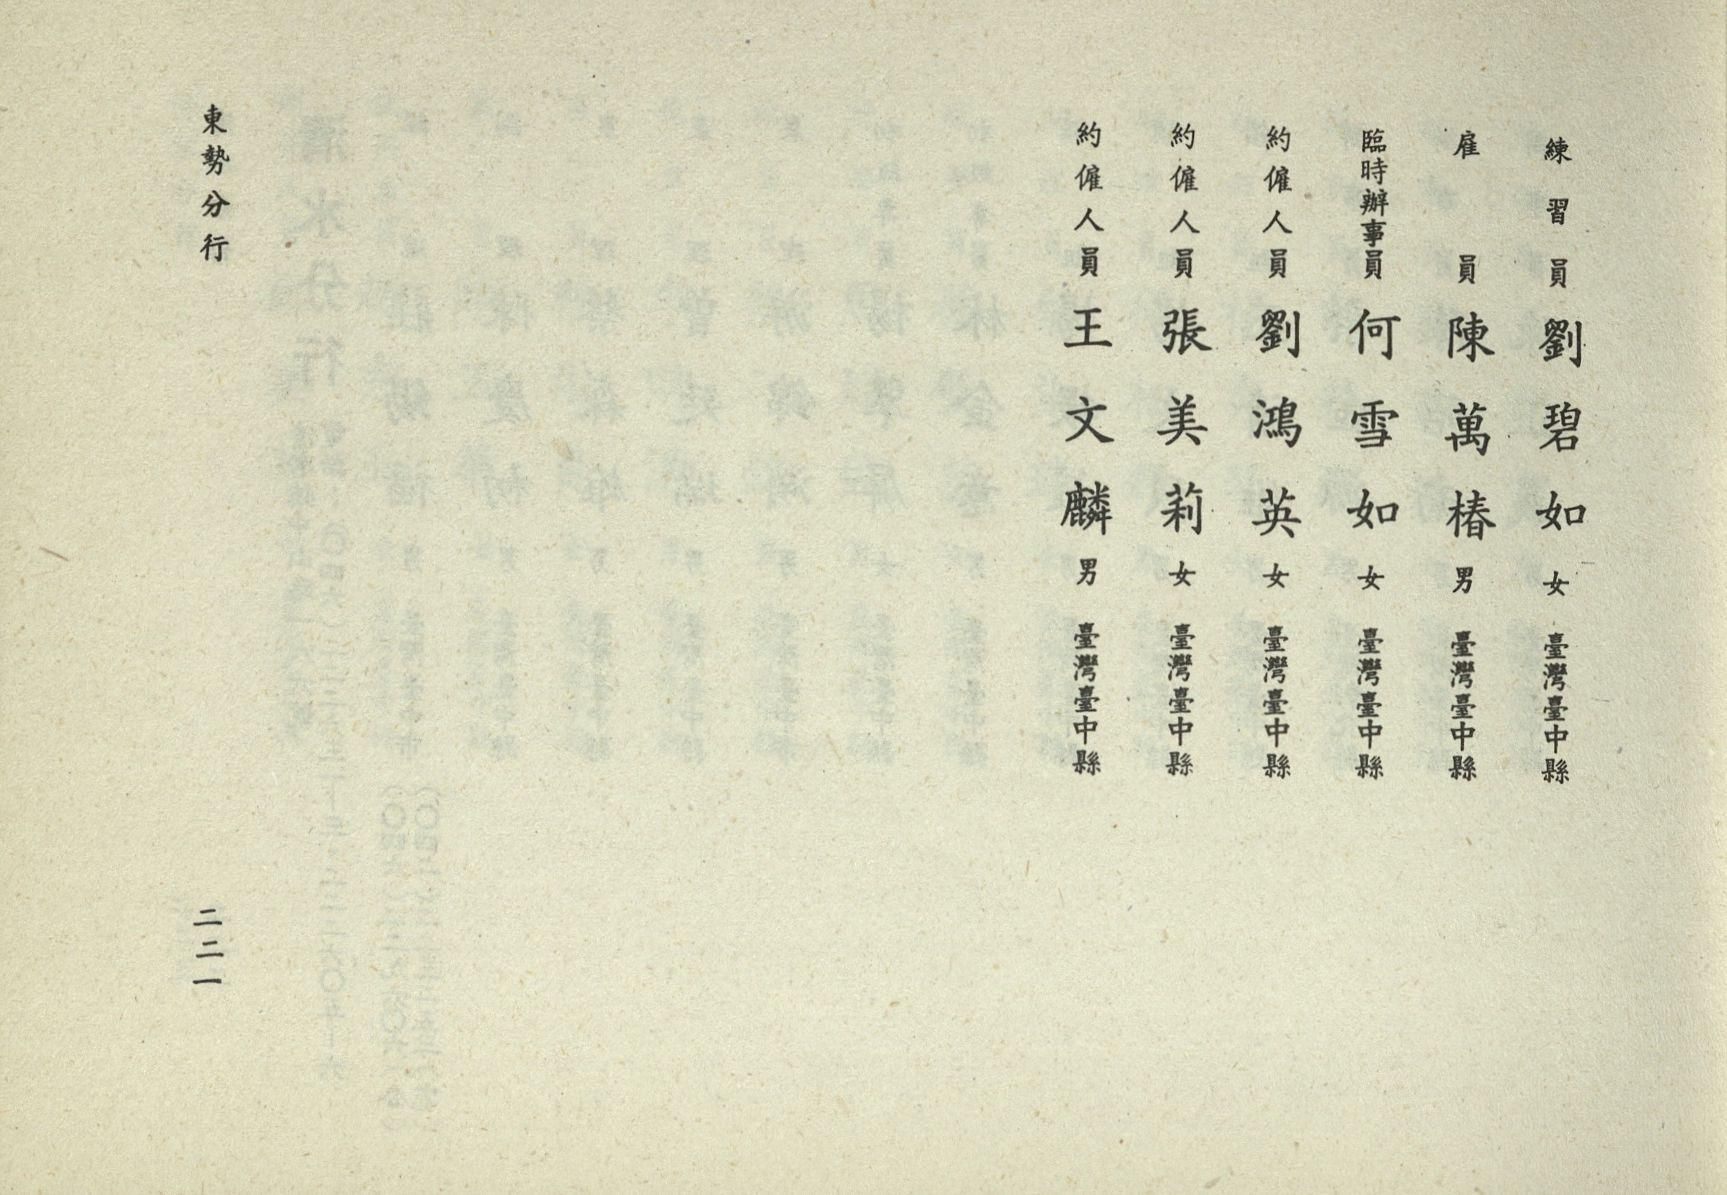 練習員 劉碧如 女 臺灣臺中縣
雇員 陳萬椿 男 臺灣臺中縣
臨時辦事員 何雪如 女 臺灣臺中縣
約僱人員 劉鴻英 女 臺灣臺中縣
約僱人員 張美莉 女 臺灣臺中縣
約僱人員 王文麟 男 臺灣臺中縣
東勢分行
二二一